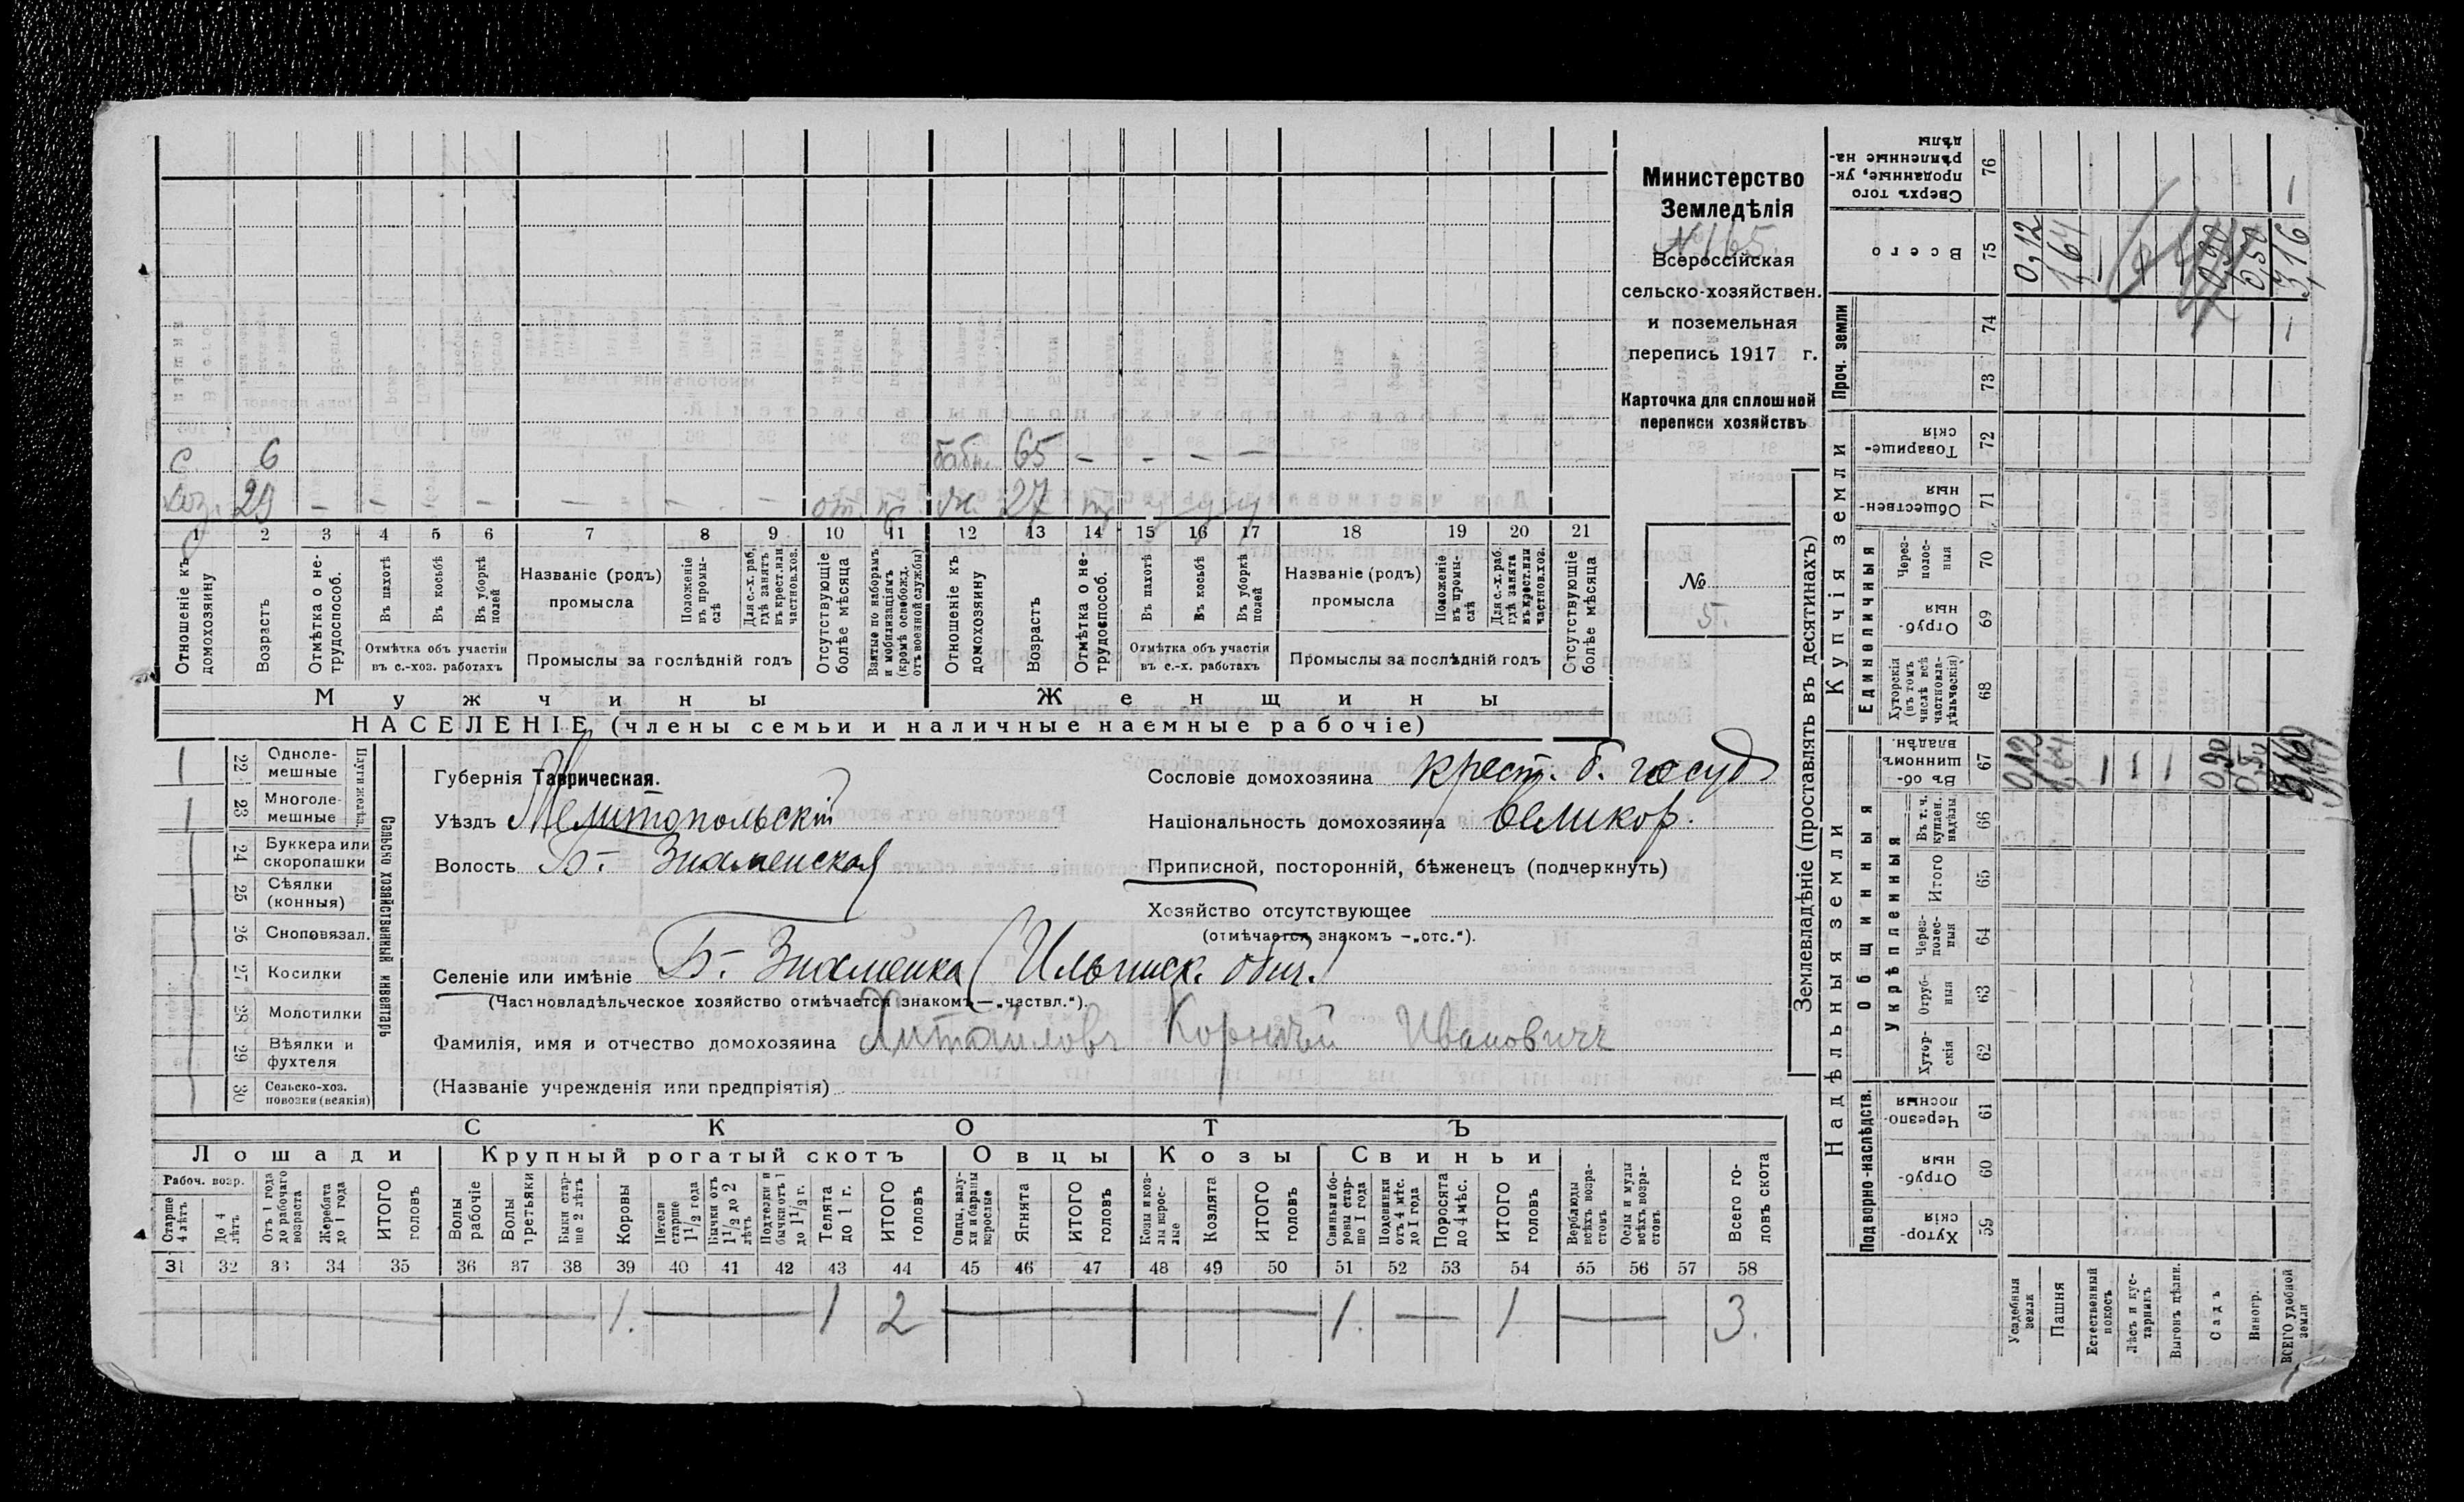 Министерство
Земледѣлія
№ 165.
Всероссійская
сельско-хозяйствен.
и поземельная
перепись 1917 г.
Карточка для сплошной
переписи хозяйствъ
№
5.
с. 6 бабк. 65 — — — —
хоз. 29 — — — — — — — от. 27
1 2 3 4 5 6 7 8 9 10 11 12 13 14 15 16 17 18 19 20 21
Отношеніе къ домохозяину
Возрастъ
Отмѣтка о не-трудоспособ.
Въ пахотѣ
Въ косьбѣ
Въ уборкѣ полей
Отмѣтка объ участіи въ с.-хоз. работахъ
Названіе (родъ) промысла
Положеніе въ промы-слѣ
Для с.-х. раб. гдѣ занятъ въ крест. или частнов. хоз.
Промыслы за послѣдній годъ
Отсутствующіе болѣе мѣсяца
Взятые по наборамъ и мобилизаціямъ (кромѣ освобожд. отъ военной службы)
Отношеніе къ домохозяину
Возрастъ
Отмѣтка о не-трудоспособ.
Въ пахотѣ
Въ косьбѣ
Въ уборкѣ полей
Отмѣтка объ участіи въ с.-х. работахъ
Названіе (родъ) промысла
Положеніе въ промы-слѣ
Для с.-х. раб. гдѣ занята въ крест. или частнов. хоз.
Промыслы за послѣдній годъ
Отсутствующіе болѣе мѣсяца
Мужчины
Женщины
НАСЕЛЕНІЕ (члены семьи и наличные наемные рабочіе)
22 Одноле-мешные
23 Многоле-мешные
Плуги желѣз.
24 Буккера или скоропашки
25 Сѣялки (конныя)
26 Сноповязал.
27 Косилки
28 Молотилки
29 Вѣялки и фухтеля
30 Сельско-хоз. повозки (всякія)
Сельско хозяйственный инвентарь
Губернія Таврическая.
Уѣздъ Мелитопольскій
Волость Б- Знаменская
Сословіе домохозяина крест. б. госуд
Національность домохозяина великор.
Приписной, посторонній, бѣженецъ (подчеркнуть)
Хозяйство отсутствующее
(отмѣчается знакомъ —„отс.“).
Селеніе или имѣніе Б- Знаменка (Ильинск. общ.)
(Частновладѣльческое хозяйство отмѣчается знакомъ—„частвл.“).
Фамилія, имя и отчество домохозяина Корнѣй Ивановичъ
(Названіе учрежденія или предпріятія)
СКОТЪ
Лошади Крупный рогатый скотъ Овцы Козы Свиньи
Рабоч. возр.
Старше 4 лѣтъ
До 4 лѣтъ
Отъ 1 года до рабочаго возраста
Жеребята до 1 года
ИТОГО головъ
Волы рабочіе
Волы третьяки
Быки стар-ше 2 лѣтъ
Коровы
Нетели старше 1 1/2 года
Бычки отъ 1 1/2 до 2 лѣтъ
Подтелки и бычки отъ 1 до 1 1/2 г.
Телята до 1 г.
ИТОГО головъ
Овцы, валу-хи и бараны взрослые
Ягнята
ИТОГО головъ
Козы и коз-лы взрос-лые
Козлята
ИТОГО головъ
Свиньи и бо-ровы стар-ше 1 года
Подсвинки отъ 4 мѣс. до 1 года
Поросята до 4 мѣс.
ИТОГО головъ
Верблюды всѣхъ возра-стовъ
Ослы и мулы всѣхъ возра-стовъ
Всего го-ловъ скота
31 32 33 34 35 36 37 38 39 40 41 42 43 44 45 46 47 48 49 50 51 52 53 54 55 56 57 58
1. 1 2 1. — 1 — 3.
Землевладѣніе (проставлять въ десятинахъ)
Надѣльныя земли
Купчія земли
Проч. земли
Подворно-наслѣдств.
Общинныя
Укрѣпленныя
Единоличныя
Сверхъ того проданные, ук-рѣпленные на-дѣлы 76
Всего 75
74
73
Товарище-скія 72
Обществен-ныя 71
Через-полос-ныя 70
Отруб-ныя 69
Хуторскія (въ томъ числѣ всѣ частновла-дѣльческія) 68
Въ об-щинномъ владѣн. 67
Въ т. ч. куплен. надѣлы 66
Итого 65
Через-полос-ныя 64
Отруб-ныя 63
Хутор-скія 62
Черезпо-лосныя 61
Отруб-ныя 60
Хутор-скія 59
Усадебныя земли
Пашня
Естественный покосъ
Лѣсъ и кус-тарникъ
Выгонъ цѣлин.
Садъ
Виногр.
ВСЕГО удобной земли
0,12
1,64
0,90
0,50
3,16
0,12
1,64
0,90
0,50
3,16